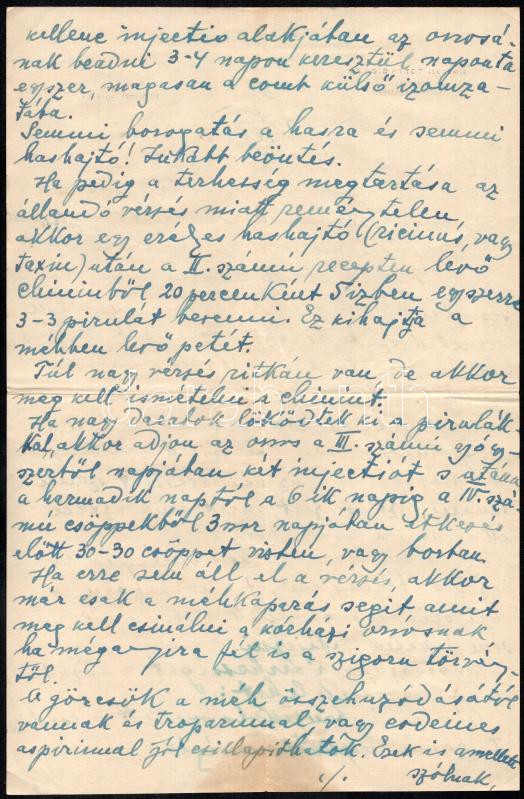 kellene injectio alakjában az orvosá-
nak beadni 3-4 napon keresztül naponta
egyszer, magasan a comb külső izomza-
tába.
Semmi borogatás a hasra és semmi
hashajtó! Inkább beöntés.
Ha pedig a terhesség megtartása az
állandó vérzés miatt reménytelen,
akkor egy erélyes hashajtó (ricinus, vagy
taxin) után a II. számú recepten levő
chininből, 20 percenként 5 izben egyszerre
3-3 pirulát bevenni. Ez kihajtja a
méhben levő petét.
Túl nagy vérzés ritkán van de akkor
meg kell ismételni a chinint.
Ha nagy darabok lökődtek ki a pirulák-
kal, akkor adjon az orvos a III. számú gyógy-
szertől napjában két injectiót s utána
a harmadik naptól a 6 ik napig a IV. szá-
mú csöppekből 3 szor napjában étkezés
előtt 30-30 csöppet vizben, vagy borban.
Ha erre sem áll el a vérzés, akkor
már csak a méhkaparás segit amit
meg kell csinálni a kórházi orvosnak
ha mégannyira fél is a szigoru törvény-
től.
A görcsök a méh összehuzódásától
vannak és troparinnal vagy codeines
aspirinnal jól csillapithatók. Ezek is amellett
szólnak,
./.